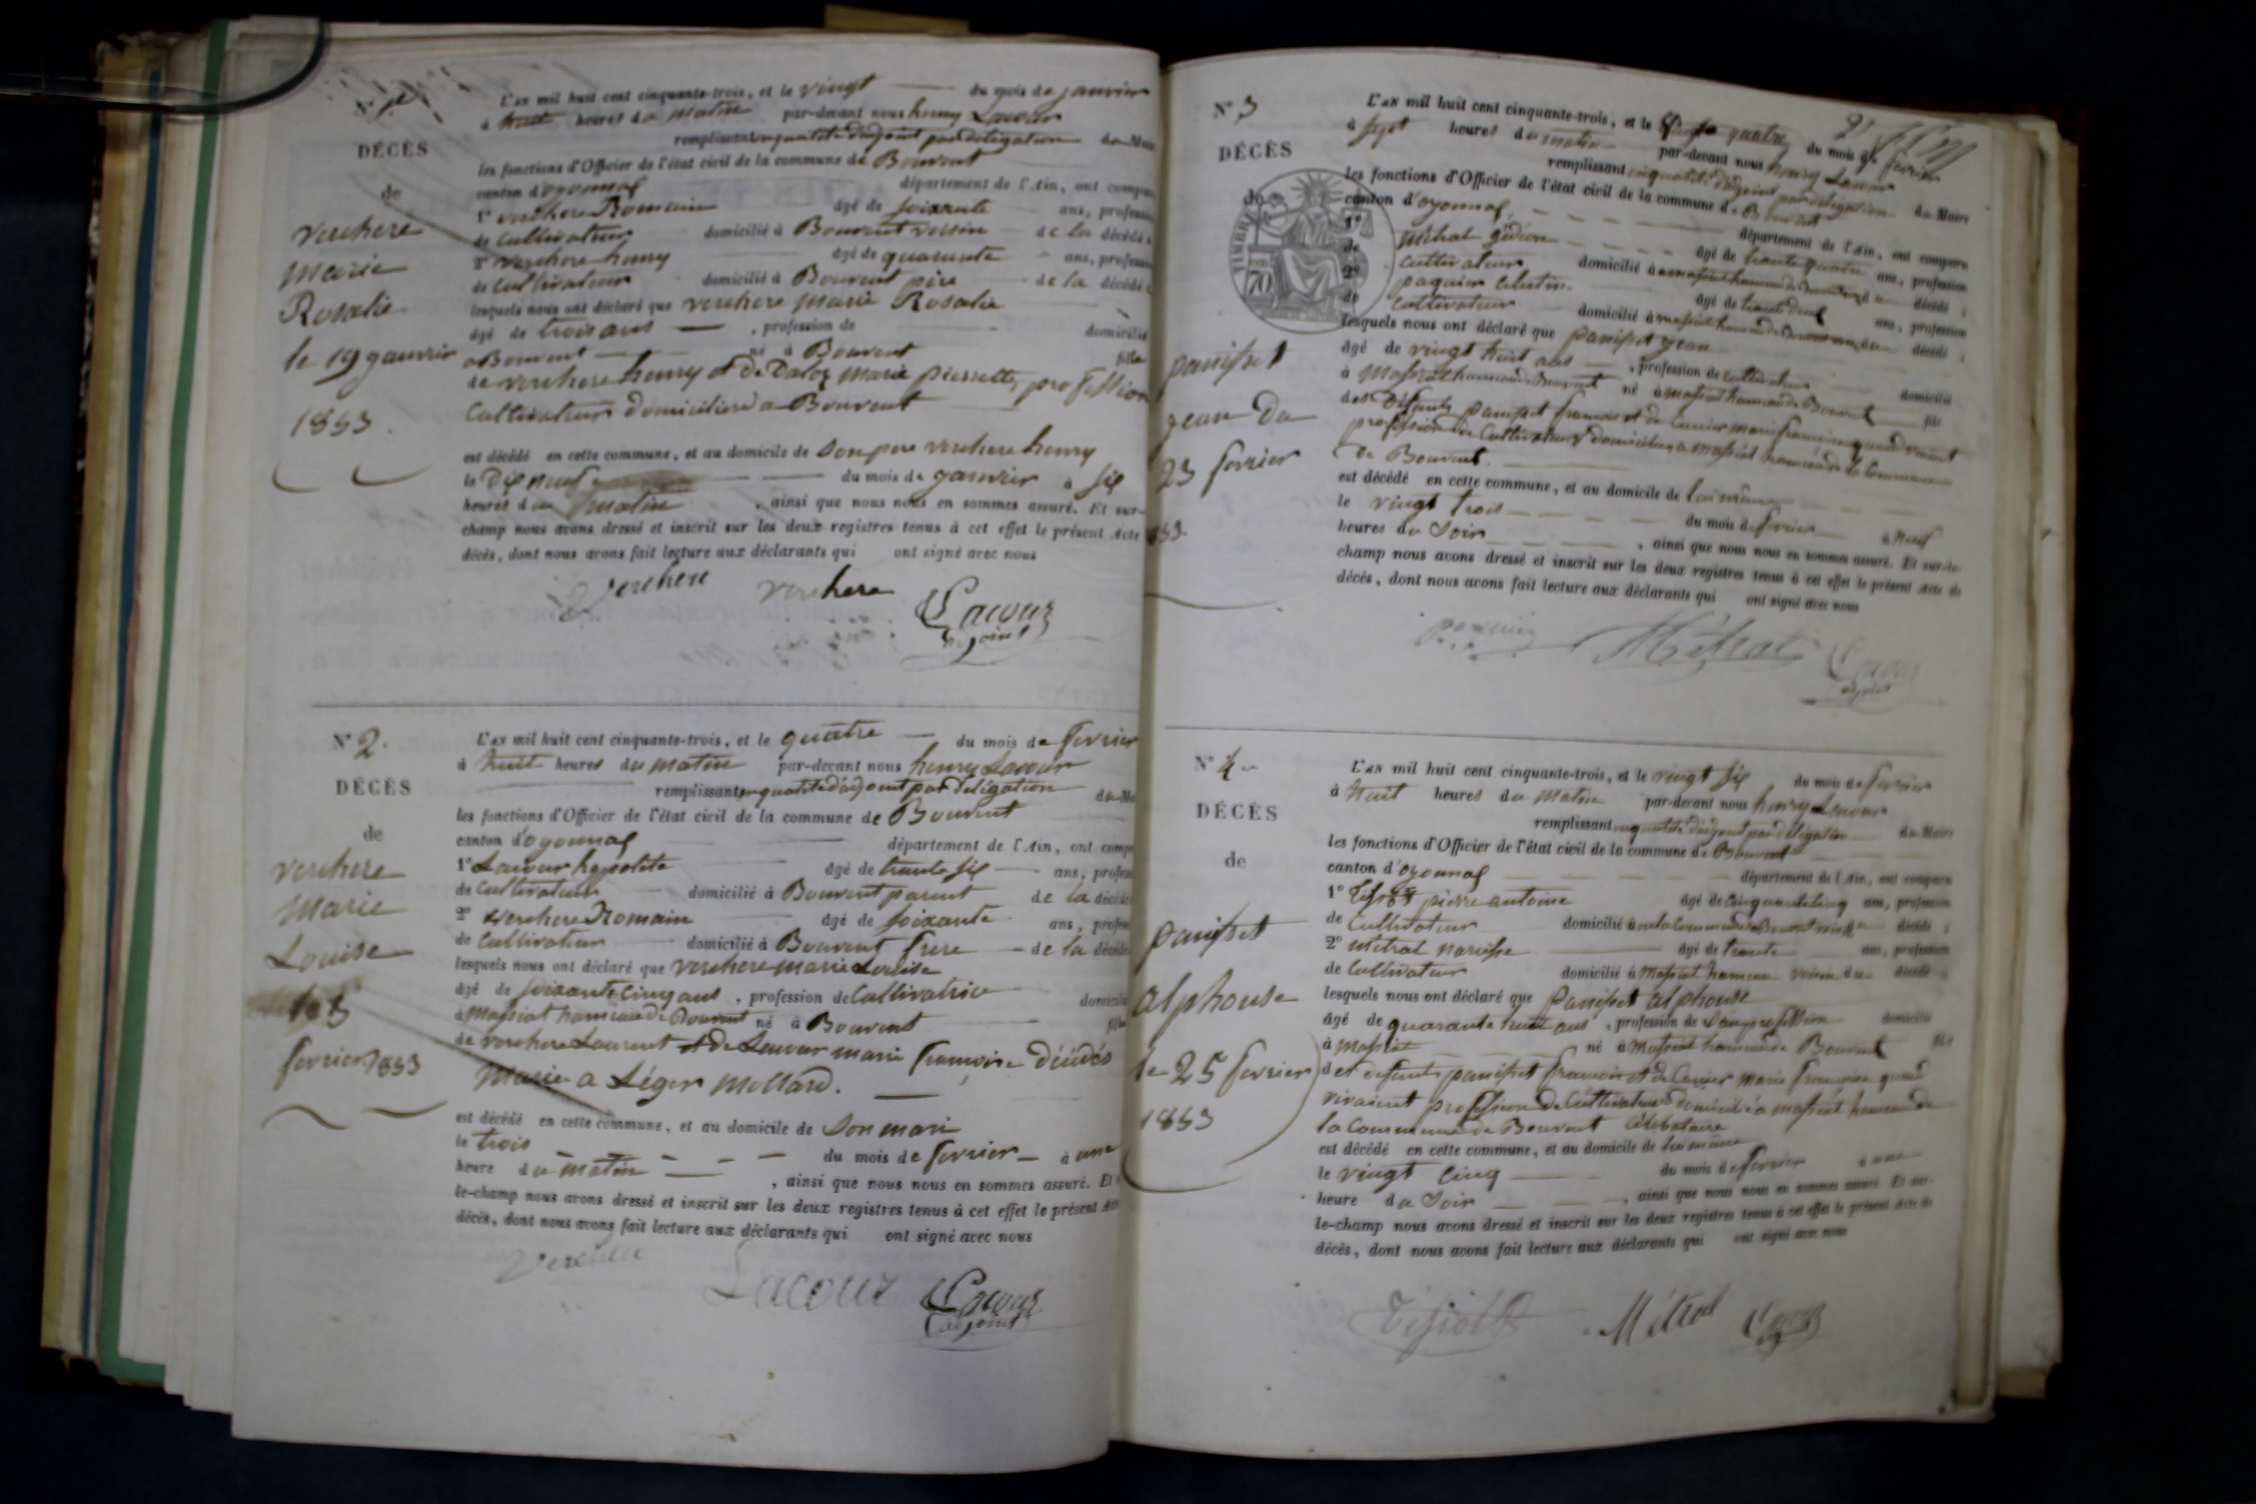 N° 1er
L'an mil huit cent cinquante-trois, et le vingt du mois de janvier
à huit heures du matin par-devant nous henry Lacour
remplissant en qualité d'adjoint par délégation du Maire
DÉCÈS
les fonctions d'Officier de l'état civil de la commune de Bouvent
de
canton d'oyonnax département de l'Ain, ont comparu
1° verchere Romain âgé de soixante ans, profession
verchere
de cultivateur domicilié à Bouvent voisin de la décédée
marie
2° verchere henry âgé de quarante ans, profession
de cultivateur domicilié à Bouvent père de la décédée
Rosalie
lesquels nous ont déclaré que verchere marie Rosalie
âgé de trois ans , profession de domicilié
le 19 janvier
a Bouvent né à Bouvent fille
de verchere henry et de Daloz marie pierrette, profession
1853
Cultivateurs domiciliers a Bouvent
est décédé en cette commune, et au domicile de son pere verchere henry
le Dix neuf du mois de janvier à six
heures du matin , ainsi que nous nous en sommes assuré. Et sur-
champ nous avons dressé et inscrit sur les deux registres tenus à cet effet le présent Acte
décès, dont nous avons fait lecture aux déclarants qui ont signé avec nous
Verchere verchere Lacour
adjoint
N° 2
L'an mil huit cent cinquante-trois, et le quatre du mois de fevrier
à huit heures du matin par-devant nous henry Lacour
DÉCÈS
remplissant en qualité d'adjoint par délégation du Ma
les fonctions d'Officier de l'état civil de la commune de Bouvent
de
canton d'oyonnax département de l'Ain, ont comp
verchere
1° Lacour hypolite âgé de trente six ans, profes
de cultivateur domicilié à Bouvent parent de la décédée
Marie
2° verchere Romain âgé de soixante ans, profes
de cultivateur domicilié à Bouvent frere de la décédée
Louise
lesquels nous ont déclaré que verchere marie Louise
âgé de soixante cinq ans , profession de Cultivatrice domicilié
le 3
à Massiat hameau de Bouvent né à Bouvent fille
de verchere Laurent et de Lacour marie francoise décédés
fevrier 1853
Mariée a Léger Mollard.
est décédé en cette commune, et au domicile de son mari
le trois du mois de fevrier à une
heure du matin , ainsi que nous nous en sommes assuré. Et
le-champ nous avons dressé et inscrit sur les deux registres tenus à cet effet le présent Acte
décès, dont nous avons fait lecture aux déclarants qui ont signé avec nous
Verchere Lacour Lacour
adjoint
N° 3
L'an mil huit cent cinquante-trois, et le vingt quatre du mois de fevrier
à sept heures du matin par-devant nous henry Lacour
DÉCÈS
remplissant en qualité d'adjoint par délégation du Maire
les fonctions d'Officier de l'état civil de la commune de Bouvent
de
canton d'oyonnax, département de l'Ain, ont comparu
TIMBRE
70
1° Métral gédéon âgé de trente quatre ans, profession
de cultivateur domicilié à massiat hameau de Bouvent du décédé ;
2° paquier celestin âgé de trente deux ans, profession
de cultivateur domicilié à massiat hameau de Bouvent du décédé ;
lesquels nous ont déclaré que panisset jean
panisset
âgé de vingt huit ans , profession de cultivateur domicilié
à Massiat hameau de Bouvent né à massiat hameau de Bouvent fils
jean Du
des défunts panisset francois et de Cuvier marie francoise quand vivaient
profession de Cultivateurs domiciliers a massiat hameau de la Commune
23 fevrier
de Bouvent.
est décédé en cette commune, et au domicile de lui même
le vingt trois du mois de fevrier à neuf
1853
heures du soir , ainsi que nous nous en sommes assuré. Et sur-le-
champ nous avons dressé et inscrit sur les deux registres tenus à cet effet le présent Acte de
décès, dont nous avons fait lecture aux déclarants qui ont signé avec nous
paquier Métral Lacour
adjoint
N° 4
L'an mil huit cent cinquante-trois, et le vingt six du mois de fevrier
à huit heures du matin par-devant nous henry Lacour
DÉCÈS
remplissant en qualité d'adjoint par délégation du Maire
les fonctions d'Officier de l'état civil de la commune de Bouvent
de
canton d'oyonnax département de l'Ain, ont comparu
1° Tissot pierre antoine âgé de cinquante cinq ans, profession
de Cultivateur domicilié à en la Commune de Bouvent du décédé ;
panisset
2° métral narcisse âgé de trente ans, profession
de Cultivateur domicilié à Massiat hameau voisin du décédé ;
alphonse
lesquels nous ont déclaré que panisset alphonse
âgé de quarante huit ans , profession de sans profession domicilié
à Massiat né à Massiat hameau de Bouvent fils
le 25 fevrier
des défunts panisset francois et de Cuvier marie francoise quand
vivaient profession de Cultivateurs domiciliés a massiat hameau de
1853
la Commune de Bouvent célibataire
est décédé en cette commune, et au domicile de lui même
le vingt cinq du mois de fevrier à une
heure du soir , ainsi que nous nous en sommes assuré. Et sur-
le-champ nous avons dressé et inscrit sur les deux registres tenus à cet effet le présent Acte de
décès, dont nous avons fait lecture aux déclarants qui ont signé avec nous
Métral Lacour